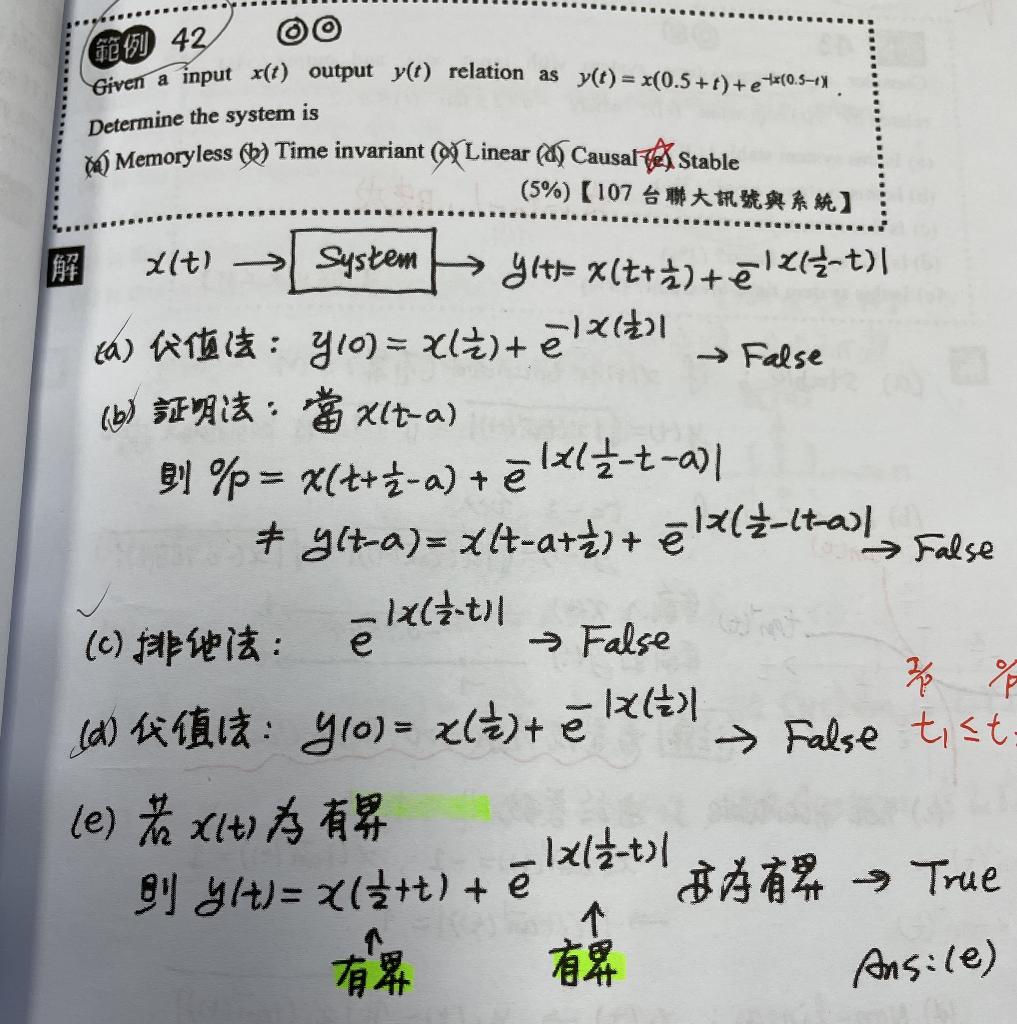 範例 42 ◎◎
Given a input x(t) output y(t) relation as y(t) = x(0.5+t) + e^{-|x(0.5-t)|} .
Determine the system is
(a) Memoryless (b) Time invariant (c) Linear (d) Causal (e) Stable
(5%)【107 台聯大訊號與系統】
解 x(t) → System → y(t) = x(t+½) + e^{-|x(½-t)|}
(a) 代值法: y(0) = x(½) + e^{-|x(½)|} → False
(b) 証明法: 當 x(t-a)
則 o/p = x(t+½-a) + e^{-|x(½-t-a)|}
≠ y(t-a) = x(t-a+½) + e^{-|x(½-(t-a)|} → False
(c) 排他法: e^{-|x(½-t)|} → False
i/p o/p
(d) 代值法: y(0) = x(½) + e^{-|x(½)|} → False t₁ ≤ t
(e) 若 x(t) 為 有界
則 y(t) = x(½+t) + e^{-|x(½-t)|} 亦為有界 → True
↑ ↑
有界 有界 Ans: (e)